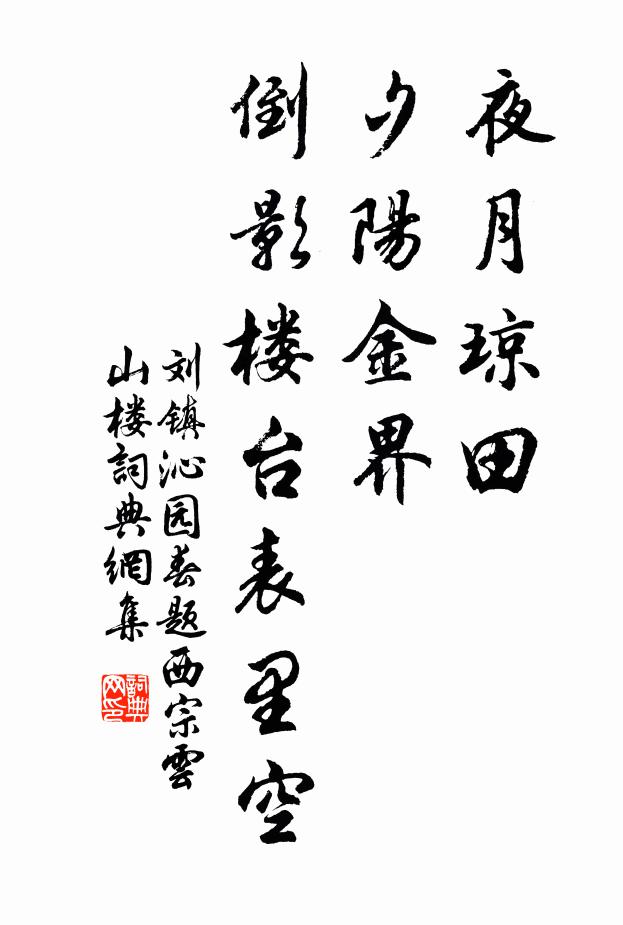 夜月琼田
夕陽金界
倒影楼台表里空
刘镇沁园春题西宗雲
山楼詞典網集
詞典
网印